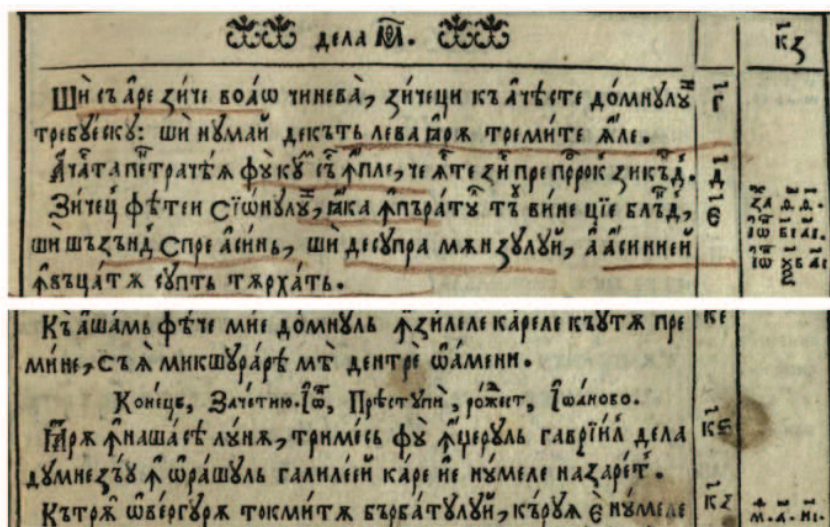 дела М҃А. к҃з
Шѝ съ а҆́ре зи́че воа́ѡ чинева̀, зи́чеци къ ачѣ́сте до́мнулꙋ г҃
требꙋе́скꙋ: шѝ нꙋма́й декъ́ть лева ꙗ҆рѫ треми́те ꙟ҆ле.
Ача́ста пе́нтрачѣѧ фꙋ́кꙋ съ ꙟ҆пле, че ꙗ҆́сте зи́ пре проро́к зикъ́нд. д҃
Зи́чеци фѣ́теи Сїѡ́нꙋлꙋ, ꙗ҆ка ꙟ҆пъра́тꙋ тъ́ꙋ ви́не цїе блъ́нд, є҃
шѝ шъзъ́нд Спре а҆си́нь, шѝ десꙋпра мѫнзꙋлꙋ́й, а҆ а҆си́нией
ꙟ҆въца́тѫ сꙋпть тѫрха́ть.
Къ а҆ша́мь фѣ́че мїе до́мнꙋль ꙟ҆зи́леле ка́реле къꙋтѫ пре к҃е
ми́не, съ ѧ҆̀ микшꙋра́рѣ мѣ̀ дентрѐ ѡ҆а́мени.
Коне́цъ, Зача́тию. І҆ѡ҃, Прѣ́ступи, ро́жест, І҆ѡа́ново.
Ꙗ҆рѫ ꙟ҆наша́сѣ лꙋ́нѫ, триме́сь фꙋ̀ ꙟ҆́церꙋль гаврїи́л дела к҃ѕ
дꙋмнезъ́ꙋ ꙟ҆ ѡ҆ра́шꙋль галиле́ей ка́ре йе нꙋ́меле назаре́т.
Кътрѫ̀ ѡ҆ве́ргꙋрѫ токми́тѫ бърба́тꙋлꙋй, къ́рꙋѧ є҆̀ нꙋ́меле к҃з